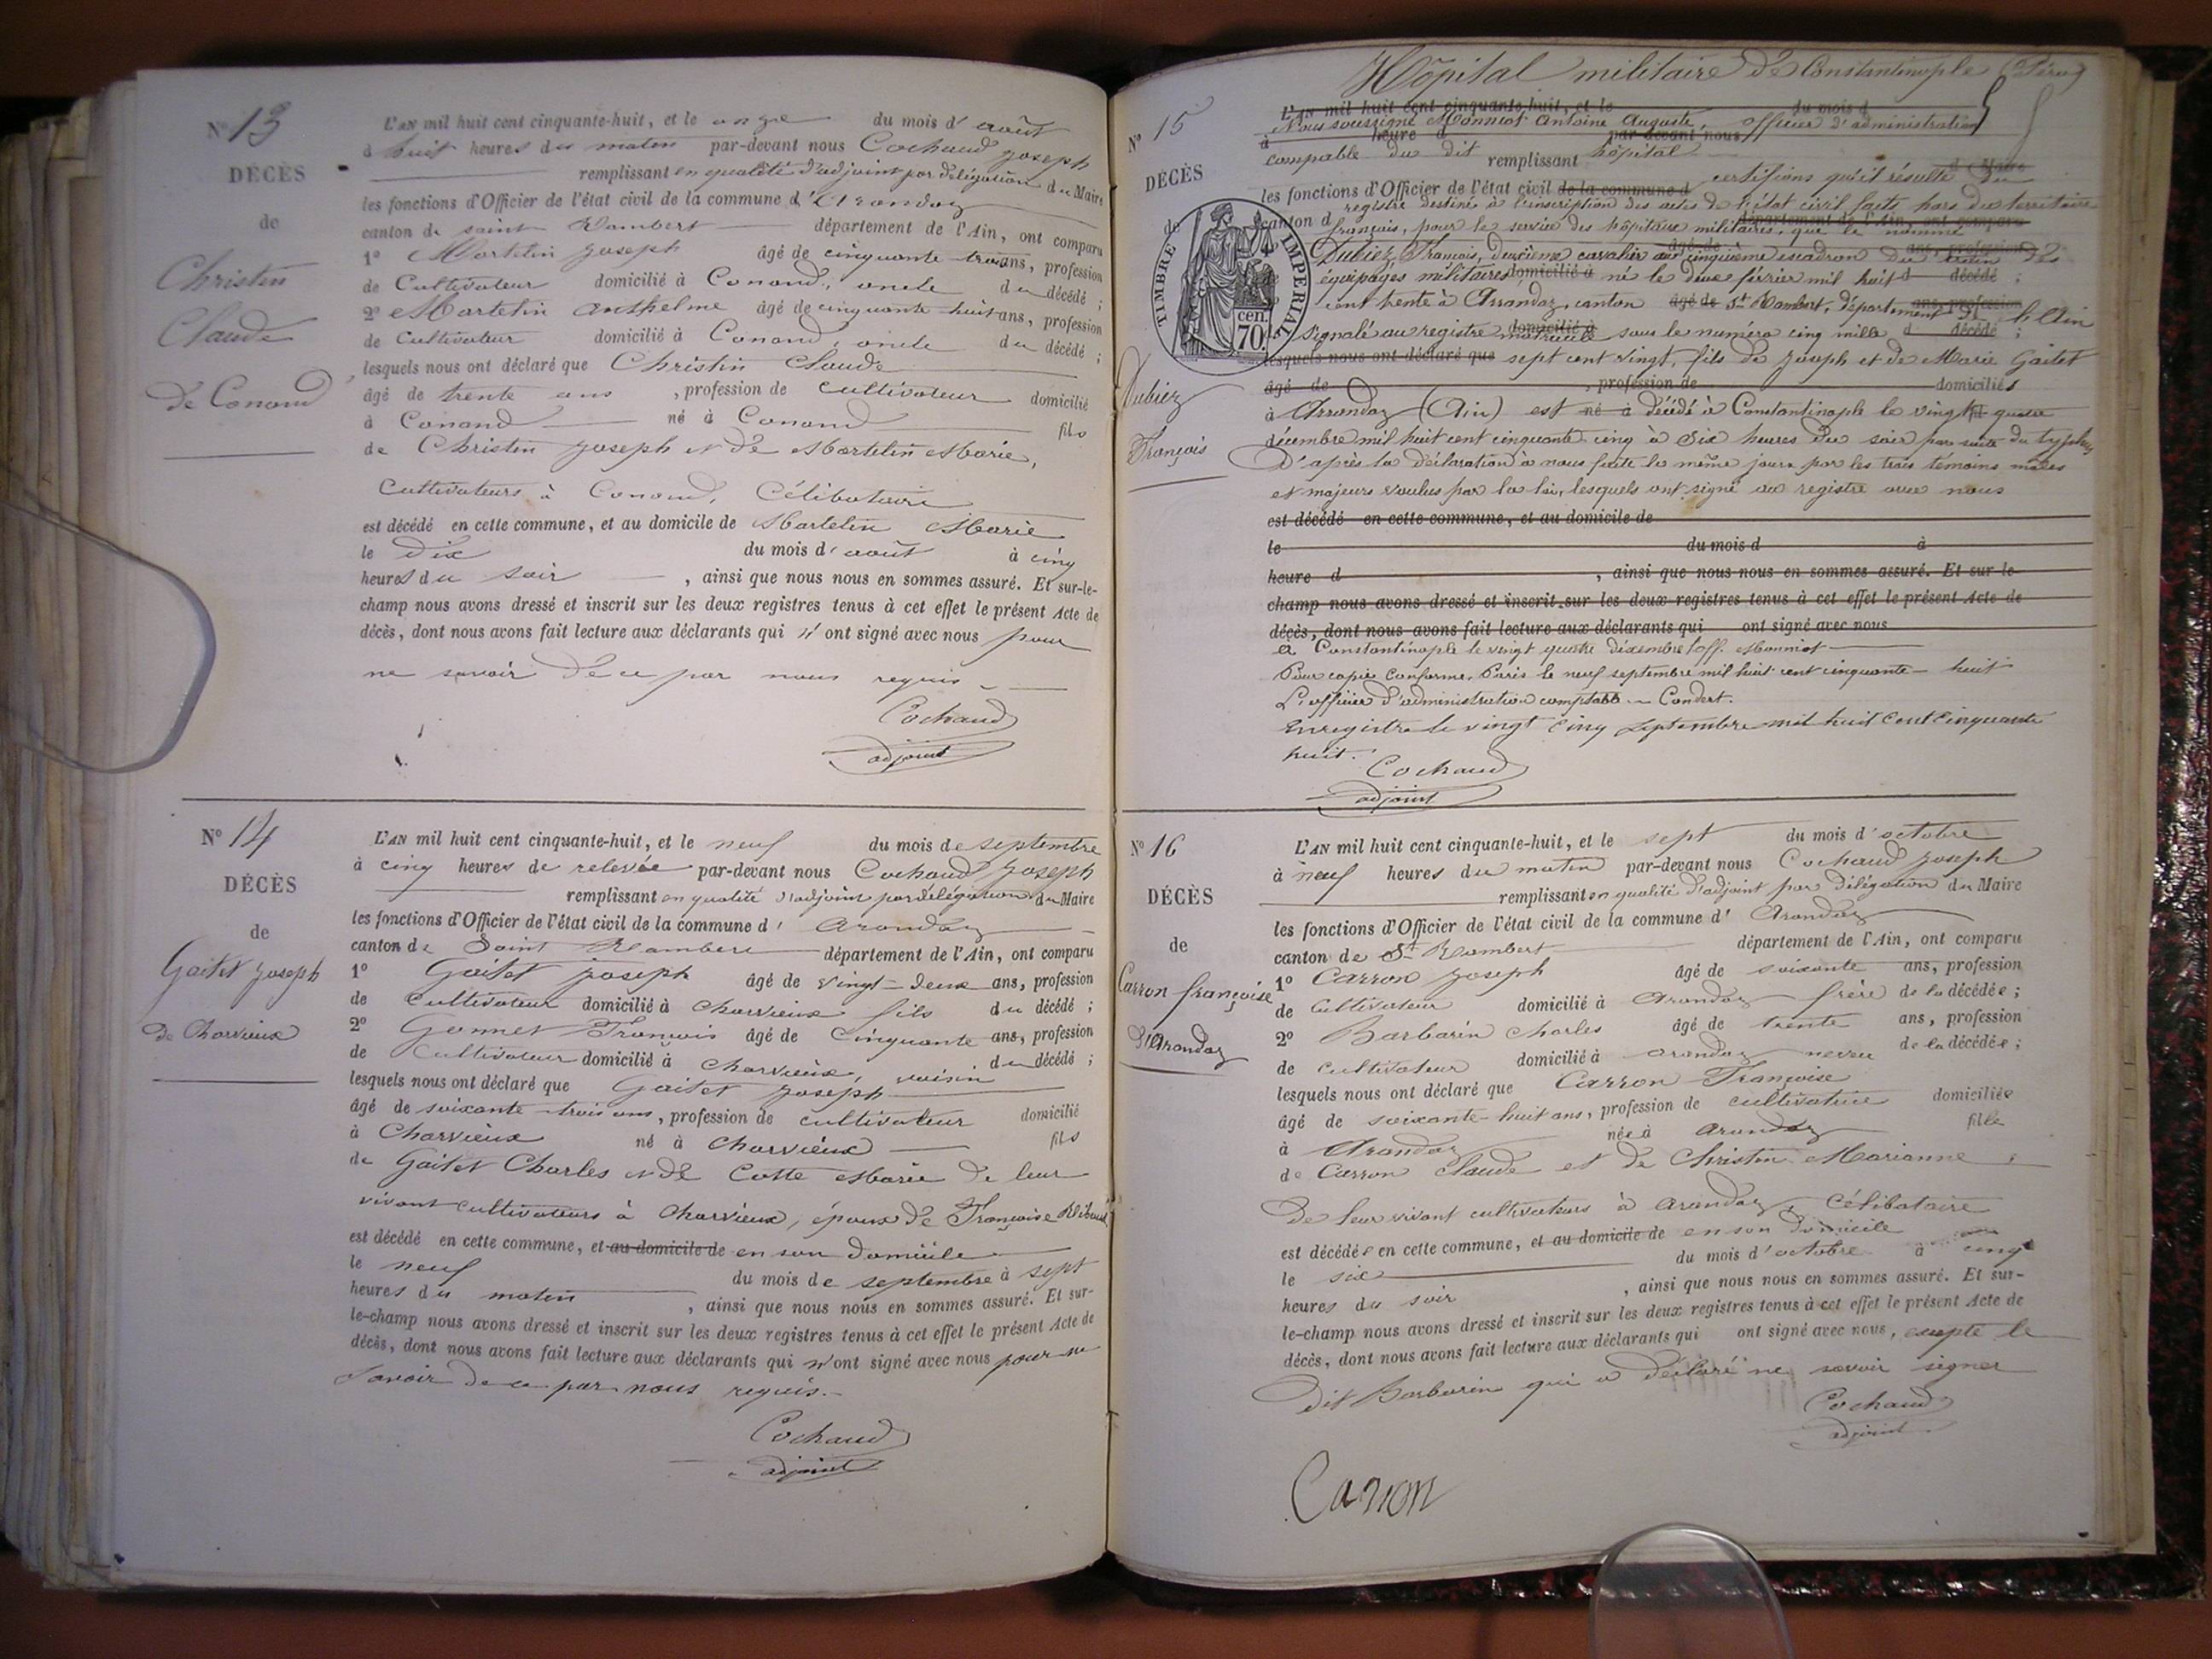 N° 13
DÉCÈS
de
Christin
Claude
de Conand
L'AN mil huit cent cinquante-huit, et le onze du mois d'août
à huit heures du matin par-devant nous Cochaud Joseph
remplissant en qualité d'adjoint par délégation du Maire
les fonctions d'Officier de l'état civil de la commune d'Arandaz
canton de saint Rambert département de l'Ain, ont comparu
1° Martelin Joseph âgé de cinquante trois ans, profession
de Cultivateur domicilié à Conand, oncle du décédé ;
2° Martelin Anthelme âgé de cinquante huit ans, profession
de Cultivateur domicilié à Conand, oncle du décédé ;
lesquels nous ont déclaré que Christin Claude
âgé de trente ans, profession de cultivateur domicilié
à Conand né à Conand fils
de Christin Joseph et de Martelin Marie,
Cultivateurs à Conand, Célibataire
est décédé en cette commune, et au domicile de Martelin Marie
le dix du mois d'août à cinq
heures du soir, ainsi que nous nous en sommes assuré. Et sur-le-
champ nous avons dressé et inscrit sur les deux registres tenus à cet effet le présent Acte de
décès, dont nous avons fait lecture aux déclarants qui n'ont signé avec nous pour
ne savoir de ce par nous requis
Cochaud
adjoint
N° 14
DÉCÈS
de
Gaitet Joseph
de Charvieux
L'AN mil huit cent cinquante-huit, et le neuf du mois de septembre
à cinq heures de relevée par-devant nous Cochaud Joseph
remplissant en qualité d'adjoint par délégation du Maire
les fonctions d'Officier de l'état civil de la commune d'Arandaz
canton de Saint Rambert département de l'Ain, ont comparu
1° Gaitet Joseph âgé de vingt-deux ans, profession
de cultivateur domicilié à Charvieux fils du décédé ;
2° Gonnet François âgé de Cinquante ans, profession
de Cultivateur domicilié à Charvieux, voisin du décédé ;
lesquels nous ont déclaré que Gaitet Joseph
âgé de soixante-trois ans, profession de cultivateur domicilié
à Charvieux né à Charvieux fils
de Gaitet Charles et de Cotte Marie de leur
vivant cultivateurs à Charvieux, époux de Françoise
est décédé en cette commune, et au domicile de en son domicile
le neuf du mois de septembre à sept
heures du matin, ainsi que nous nous en sommes assuré. Et sur-
le-champ nous avons dressé et inscrit sur les deux registres tenus à cet effet le présent Acte de
décès, dont nous avons fait lecture aux déclarants qui n'ont signé avec nous pour ne
Savoir de ce par nous requis.
Cochaud
adjoint
Hôpital militaire de Constantinople (Péra)
N° 15
DÉCÈS
de
Dubiez
François
TIMBRE IMPÉRIAL
70 cen.
L'AN mil huit cent cinquante-huit, et le du mois d
Nous soussigné Monniot Antoine Auguste, officier d'administration
à heure d par-devant nous
comptable du dit hôpital
remplissant d Maire
les fonctions d'Officier de l'état civil de la commune d certifions qu'il résulte du
registre destiné à l'inscription des actes de l'état civil faits hors du territoire
canton d département de l'Ain, ont comparu
français, pour le service des hôpitaux militaires, que le nommé
âgé de ans, profession
Dubiez François, deuxième cavalier au cinquième escadron du train des
équipages militaires domicilié à né le deux février mil huit d décédé ;
cent trente à Arrandaz, canton âgé de St Rambert, département ans, profession de l'Ain
signalé au registre matricule domicilié à sous le numéro cinq mille d décédé ;
lesquels nous ont déclaré que sept cent vingt, fils de Joseph et de Marie Gaitet
âgé de , profession de domiciliés
à Arrandaz (Ain) est né à décédé à Constantinople le vingt quatre
décembre mil huit cent cinquante cinq à six heures du soir par suite du typhus
D'après la déclaration à nous faite le même jour par les trois témoins mâles
et majeurs voulus par la loi, lesquels ont signé au registre avec nous
est décédé en cette commune, et au domicile de
le du mois d à
heure d , ainsi que nous nous en sommes assuré. Et sur-le-
champ nous avons dressé et inscrit sur les deux registres tenus à cet effet le présent Acte de
décès, dont nous avons fait lecture aux déclarants qui ont signé avec nous
à Constantinople le vingt quatre décembre l'off. Monniot
Pour copie conforme, Paris le neuf septembre mil huit cent cinquante-huit
L'officier d'administration comptable
Enregistré le vingt cinq septembre mil huit Cent Cinquante
huit.
Cochaud
adjoint
N° 16
DÉCÈS
de
Carron françoise
d'Arandaz
L'AN mil huit cent cinquante-huit, et le sept du mois d'octobre
à neuf heures du matin par-devant nous Cochaud Joseph
remplissant en qualité d'adjoint par délégation du Maire
les fonctions d'Officier de l'état civil de la commune d'Arandaz
canton de St Rambert département de l'Ain, ont comparu
1° Carron Joseph âgé de soixante ans, profession
de Cultivateur domicilié à Arandaz frère de la décédée ;
2° Barbarin Charles âgé de trente ans, profession
de cultivateur domicilié à arandaz neveu de la décédée ;
lesquels nous ont déclaré que Carron Françoise
âgé de soixante-huit ans, profession de cultivatrice domiciliée
à Arandaz née à Arandaz fille
de Carron Claude et de Christin Marianne,
De leur vivant cultivateurs à Arandaz, Célibataire
est décédée en cette commune, et au domicile de en son domicile
le six du mois d'octobre à cinq
heures du soir, ainsi que nous nous en sommes assuré. Et sur-
le-champ nous avons dressé et inscrit sur les deux registres tenus à cet effet le présent Acte de
décès, dont nous avons fait lecture aux déclarants qui ont signé avec nous, excepté le
dit Barbarin qui a déclaré ne savoir signer
Cochaud
adjoint
Carron